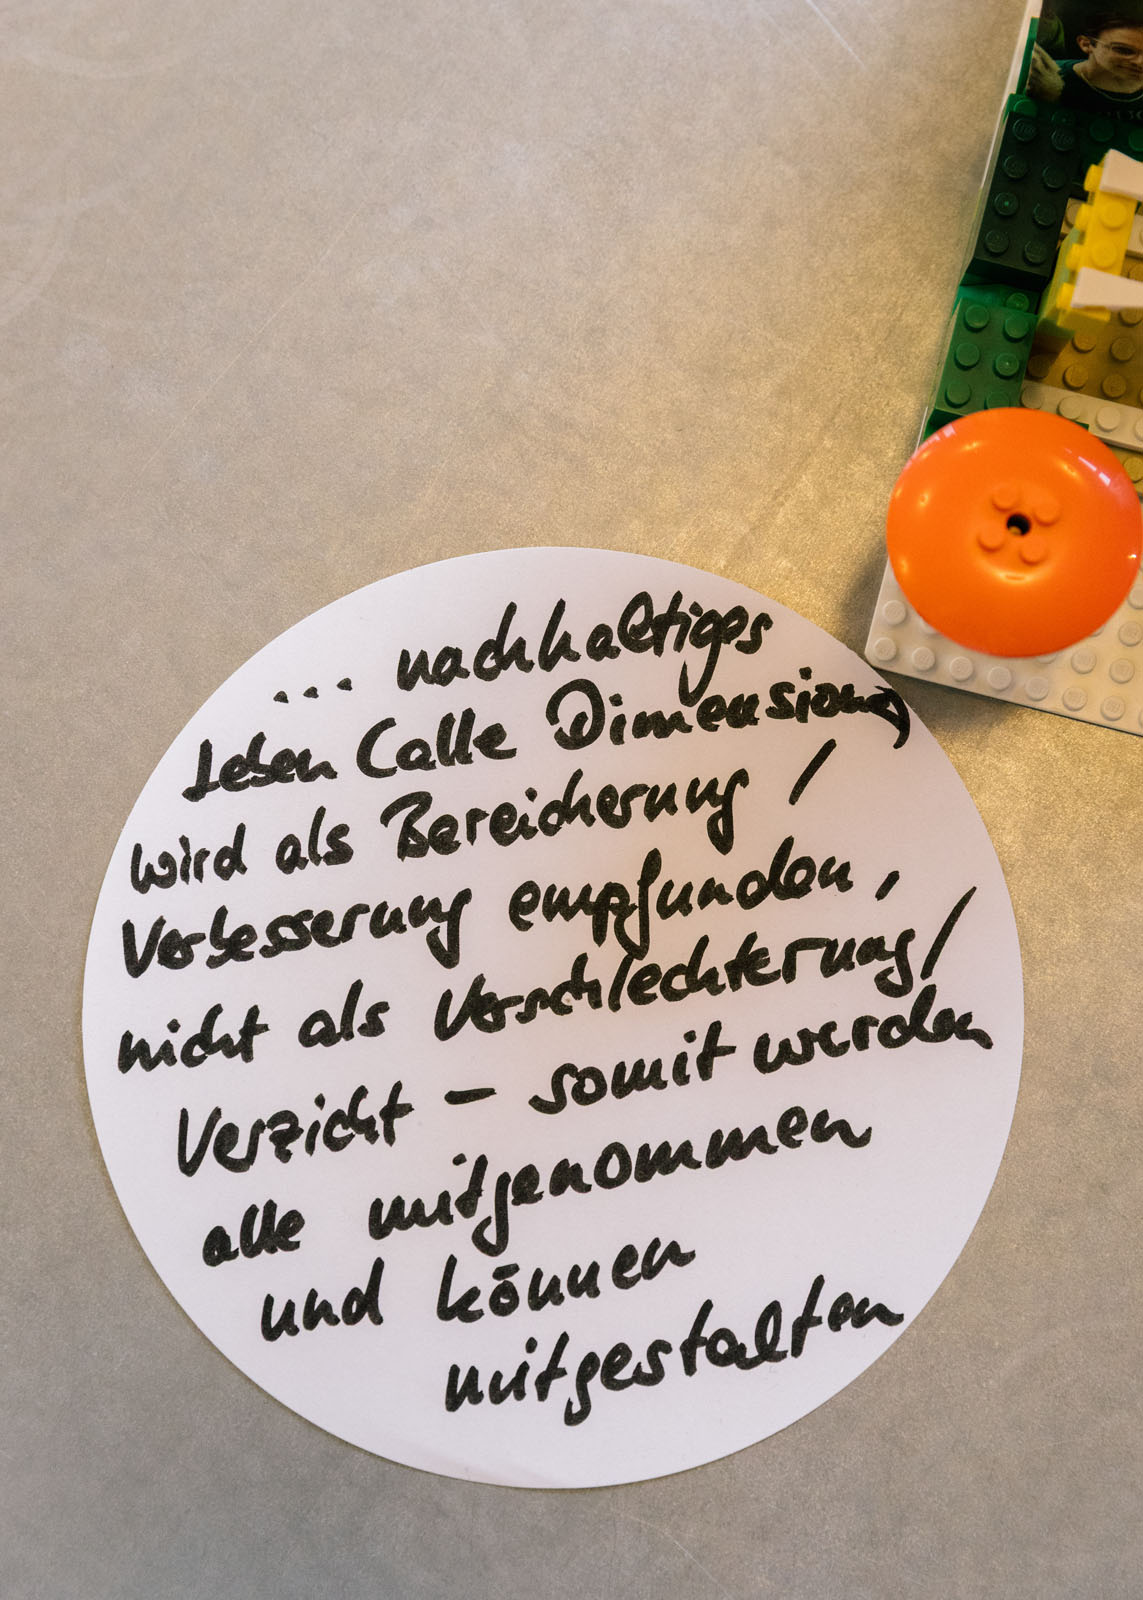 ... nachhaltiges
Leben (alle Dimensionen)
wird als Bereicherung /
Verbesserung empfunden,
nicht als Verschlechterung/
Verzicht – somit werden
alle mitgenommen
und können
mitgestalten